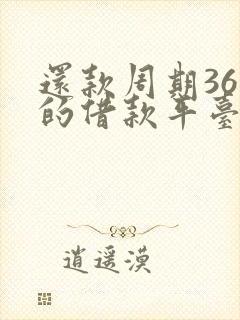 還款周期36
的借款平臺
逍遥漠